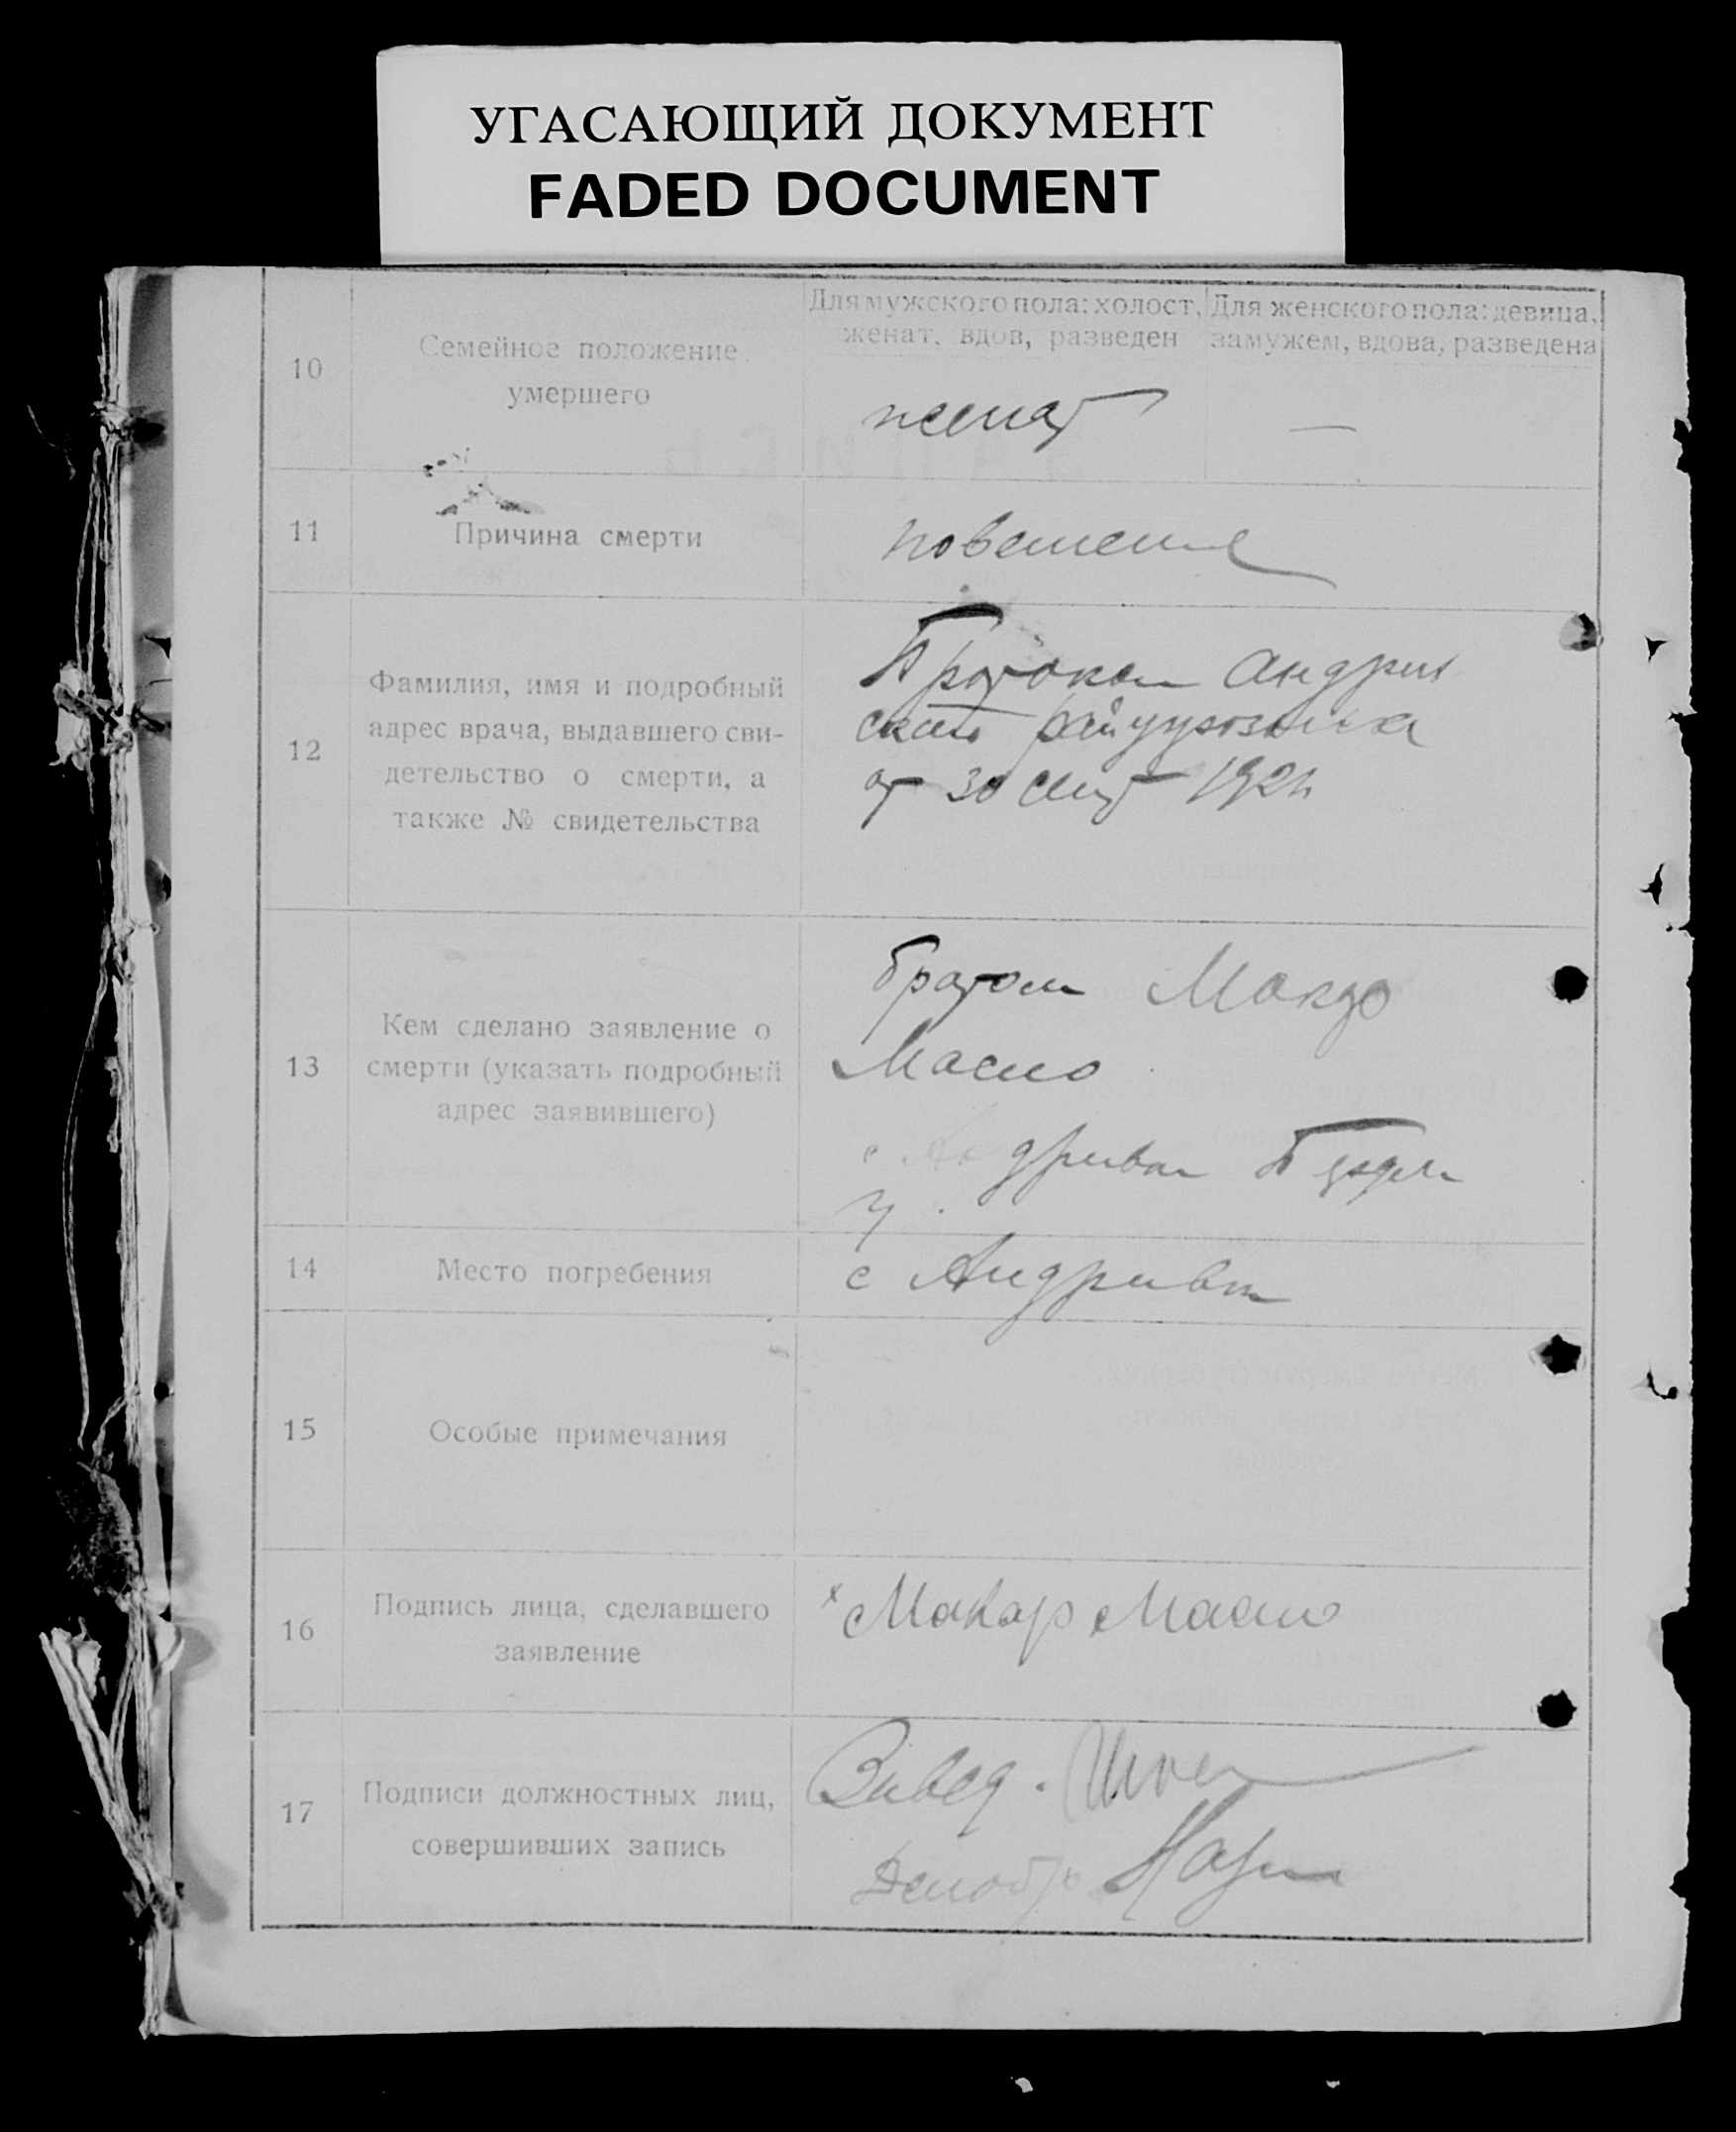 УГАСАЮЩИЙ ДОКУМЕНТ
FADED DOCUMENT
10
Семейное положение
умершего
Для мужского пола: холост,
женат, вдов, разведен
Для женского пола: девица,
замужем, вдова, разведена
женат
—
11
Причина смерти
повешение
12
Фамилия, имя и подробный
адрес врача, выдавшего сви-
детельство о смерти, а
также № свидетельства
Протокол Андрив
ского
от 30 сент 192
13
Кем сделано заявление о
смерти (указать подробный
адрес заявившего)
братом
Масло
с Андривка
14
Место погребения
с Андривка
15
Особые примечания
16
Подпись лица, сделавшего
заявление
х Макар Масло
17
Подписи должностных лиц,
совершивших запись
Завед.